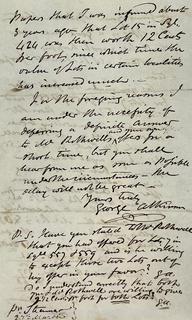 Draper that I was informed about
3 years ago that Lot 15 in Blk
424 was then worth 12 Cents
per foot, since which time the
value of Lots in certain localities
has increased much.
For the foregoing reasons I
am under the necessity of
deferring a definite answer
to Mr Rothwell's for a
short time, but you shall
hear from me as soon as possible
under the circumstances. The
delay will not be great.
Yours truly
George
P.S. Have you stated to Mr Rothwell
that you had offered for Lots
557 & 559 and is willing
to accept these two Lots out of
my offer in your favor?
I understand exactly that both
Rothwell are willing to give
for both Lots
pr Steamer